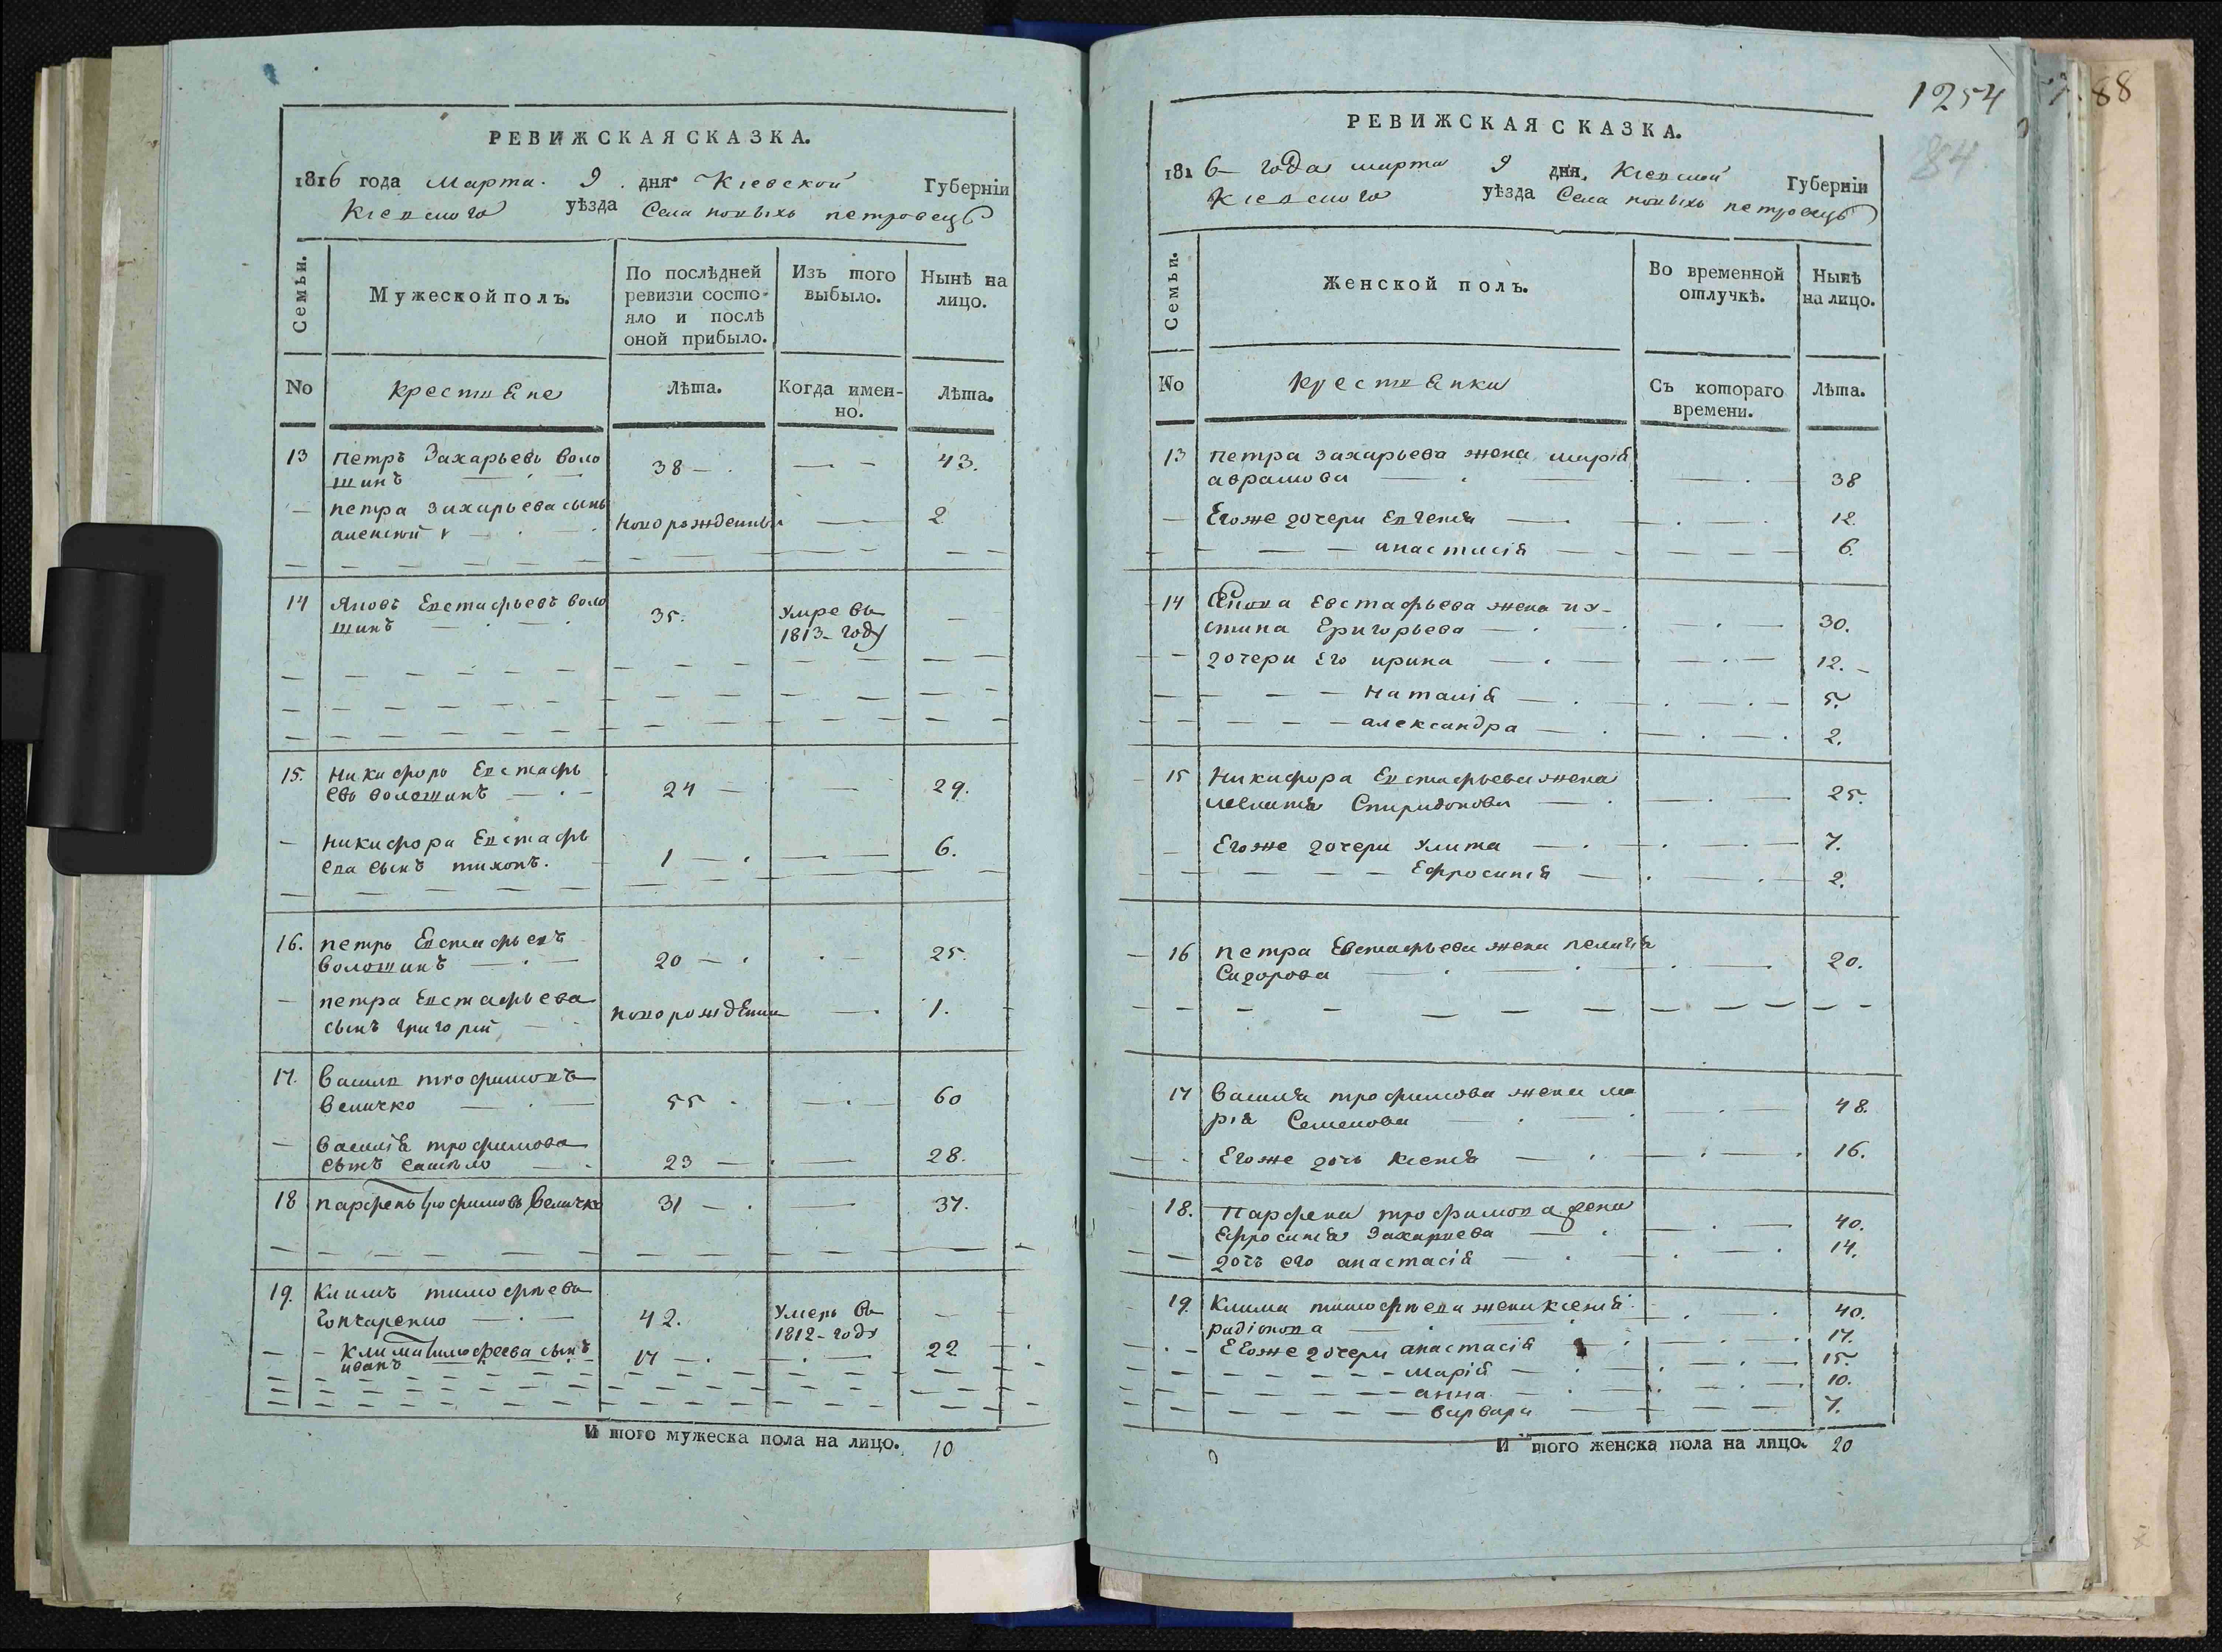 РЕВИЖСКАЯ СКАЗКА.
1816 года Марта 9 дня Кіевской Губерніи
Кіевского уѣзда Села новыхъ петровецъ
Семьи.
Мужеской полъ.
По послѣдней ревизіи состо-
яло и послѣ
оной прибыло.
Изъ того
выбыло.
Нынѣ на
лицо.
No
крестьяне
Лѣта.
Когда имен-
но.
Лѣта.
13 петръ Захарьевъ воло 38 — 43.
шинъ
— петра захарьева сынъ
алексей новорожденный — 2
14 Яковъ Евстафьевъ воло 35. Умре въ —
шинъ 1813-году
15. Никифоръ Евстафь
евъ волошинъ 24 — 29.
— никифора Евстафь
ева сынъ тихонъ. 1 — 6.
16. петръ Евстафьевъ
волошинъ 20 — 25.
— петра Евстафьева
сынъ григорій новорожденны — 1.
17. Василъ трофимовъ
величко 55 — 60
— василія трофимова
сынъ самъло 23 — 28.
18 парфенъ трофимовъ величко 31 — 37.
19. Климъ тимофѣевъ
гончаренко 42. Умеръ въ —
1812-году
— Клима тимофеева сынъ 17 — 22
иванъ
И того мужеска пола на лицо. 10
1254
88
84
РЕВИЖСКАЯ СКАЗКА.
1816 года марта 9 дня, Кіевской Губерніи
Кіевского уѣзда Села новыхъ петровецъ
Семьи.
Женской полъ.
Во временной
отлучкѣ.
Нынѣ
на лицо.
No
крестьянки
Съ котораго
времени.
Лѣта.
13 петра захарьева жена марія
аврамова — 38
— Егоже дочери Евгенія — 12
— анастасія — 6.
14 Якова Евстафьева жена иу-
стина Григорьева — 30.
— дочери его ирина — 12.
— Наталія — 5.
— александра — 2.
15 Никифора Евстафьева жена
Спиридонова — 25.
— Егоже дочери Улита — 7.
— Ефросинія — 2.
16 петра Евстафьева жена пелагія
Сидорова — 20.
17 Василія трофимова жена ма
рія Семенова — 48.
— Егоже дочь ксенія — 16.
18. Парфена трофимова жена
Ефросинія Захариева — 40.
— дочъ его анастасія — 14.
19. Клима тимофѣева жена ксенія — 40.
радіонова
— Егоже дочери анастасія — 17.
— марія — 15.
— анна — 10.
— варвара — 7.
И того женска пола на лицо. 20